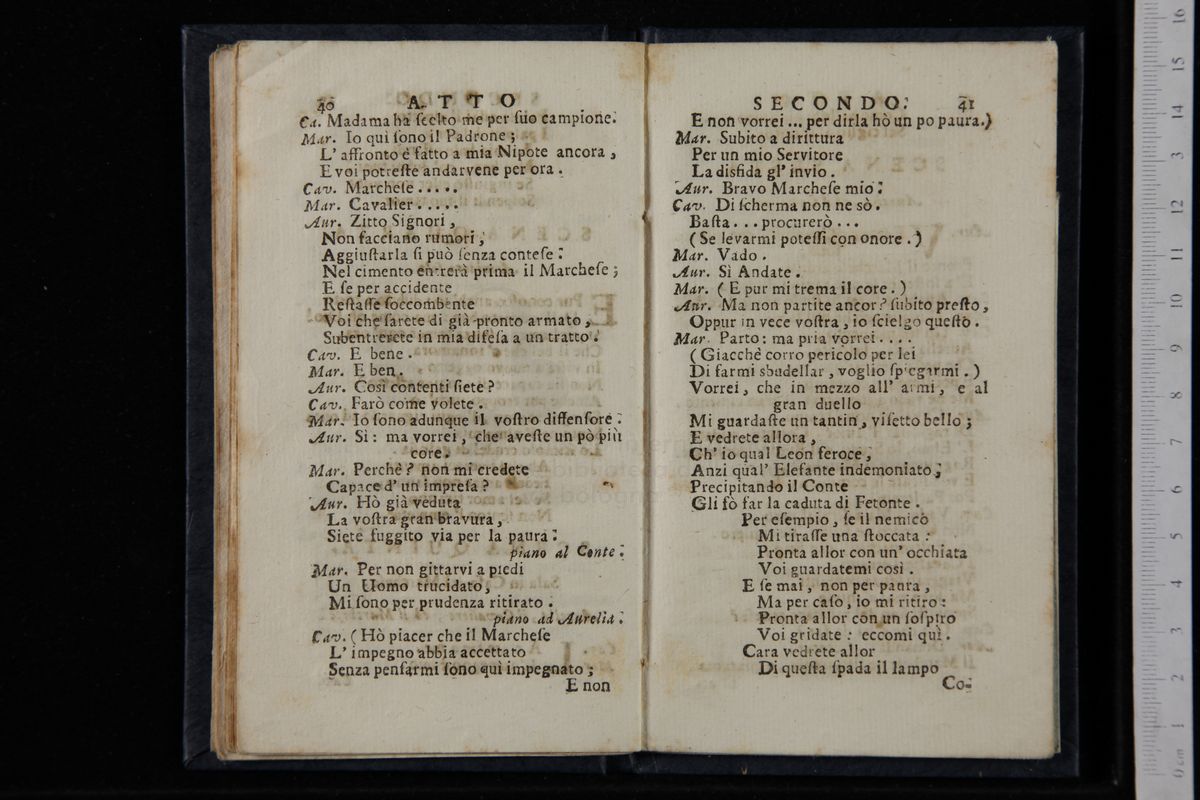 40 ATTO
Ca. Madama ha ſcelto me per ſuo campione.
Mar. Io qui ſono il Padrone ;
L' affronto è fatto a mia Nipote ancora ,
E voi potreſte andarvene per ora .
Cav. Marcheſe . . . . .
Mar. Cavalier . . . . .
Aur. Zitto Signori ,
Non facciano rumori ,
Aggiuſtarla ſi può ſenza conteſe :
Nel cimento entrerà prima il Marcheſe ;
E ſe per accidente
Reſtaſſe ſoccombente
Voi che ſarete di già pronto armato ,
Subentrerete in mia difeſa a un tratto .
Cav. E bene .
Mar. E ben .
Aur. Così contenti ſiete ?
Cav. Farò come volete .
Mar. Io ſono adunque il voſtro diffenſore .
Aur. Sì : ma vorrei , che aveſte un pò più
core .
Mar. Perchè ? non mi credete
Capace d' un impreſa ?
Aur. Hò già veduta
La voſtra gran bravura ,
Siete fuggito via per la paura :
piano al Conte .
Mar. Per non gittarvi a piedi
Un Uomo trucidato ,
Mi ſono per prudenza ritirato .
piano ad Aurelia .
Cav. ( Hò piacer che il Marcheſe
L' impegno abbia accettato
Senza penſarmi ſono quì impegnato ;
E non
SECONDO. 41
E non vorrei ... per dirla hò un po paura.)
Mar. Subito a dirittura
Per un mio Servitore
La disfida gl' invio .
Aur. Bravo Marcheſe mio :
Cav. Di ſcherma non ne sò .
Baſta . . . procurerò . . .
( Se levarmi poteſſi con onore . )
Mar. Vado .
Aur. Sì Andate .
Mar. ( E pur mi trema il core . )
Aur. Ma non partite ancor ? ſubito preſto ,
Oppur in vece voſtra , io ſcielgo queſto .
Mar. Parto : ma pria vorrei . . . .
( Giacchè corro pericolo per lei
Di farmi sbudellar , voglio ſpiegarmi . )
Vorrei , che in mezzo all' armi , e al
gran duello
Mi guardaſte un tantin , viſetto bello ;
E vedrete allora ,
Ch' io qual Leon feroce ,
Anzi qual' Elefante indemoniato ,
Precipitando il Conte
Gli fò far la caduta di Fetonte .
Per eſempio , ſe il nemicò
Mi tiraſſe una ſtoccata :
Pronta allor con un' occhiata
Voi guardatemi così .
E ſe mai , non per paura ,
Ma per caſo , io mi ritiro :
Pronta allor con un ſoſpiro
Voi gridate : eccomi quì .
Cara vedrete allor
Di queſta ſpada il lampo
Co-